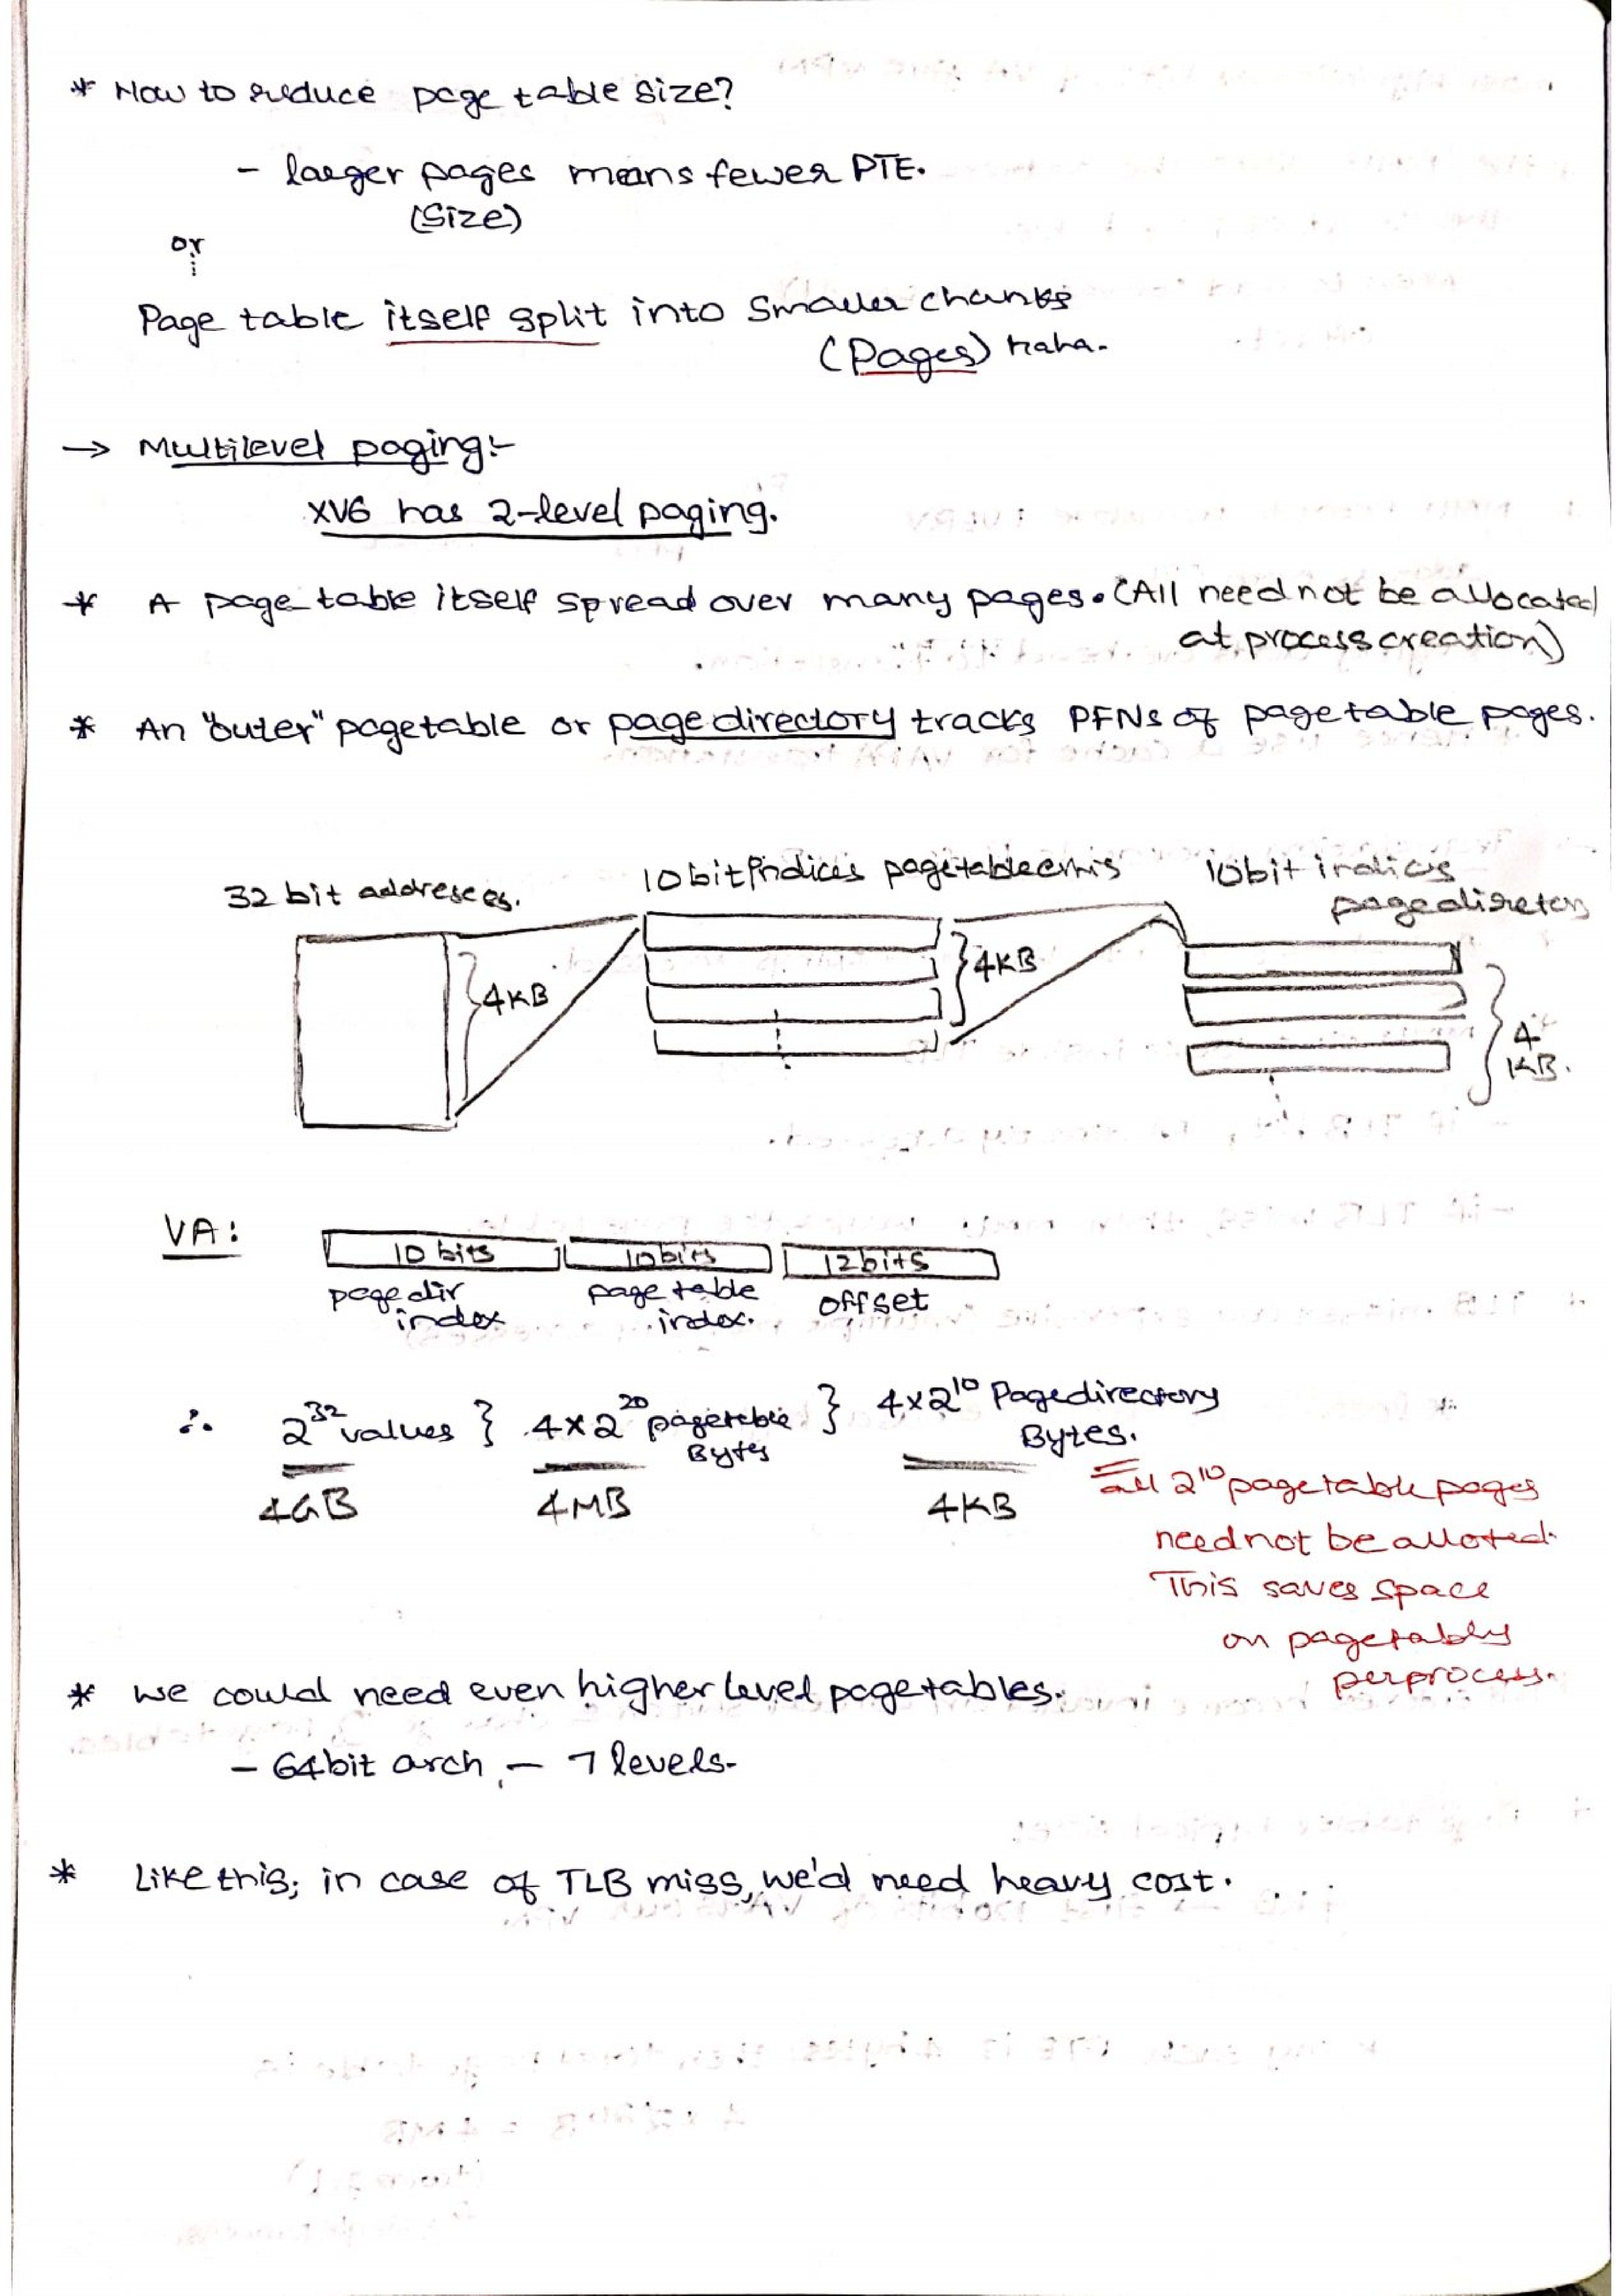 * How to reduce page table size?
- larger pages means fewer PTE.
(Size)
or
Page table itself split into smaller chunks
(Pages) haha.
→ Multilevel paging:-
XV6 has 2-level paging.
* A page table itself spread over many pages. (All need not be allocated
at process creation)
* An "outer" pagetable or page directory tracks PFNs of pagetable pages.
32 bit addresses.
10bit indices pagetable
10bit indices
page directory
4KB
4KB
4
KB.
VA:
10 bits
10bits
12bits
page dir
index
page table
index.
offset
∴ 2^32 values } 4×2^20 pagetable } 4×2^10 Pagedirectory
Bytes
Bytes.
4GB
4MB
4KB
All 2^10 pagetable pages
need not be alloted.
This saves space
on pagetables
per process.
* we could need even higher level pagetables.
- 64bit arch - 7 levels.
* Like this, in case of TLB miss, we'd need heavy cost.